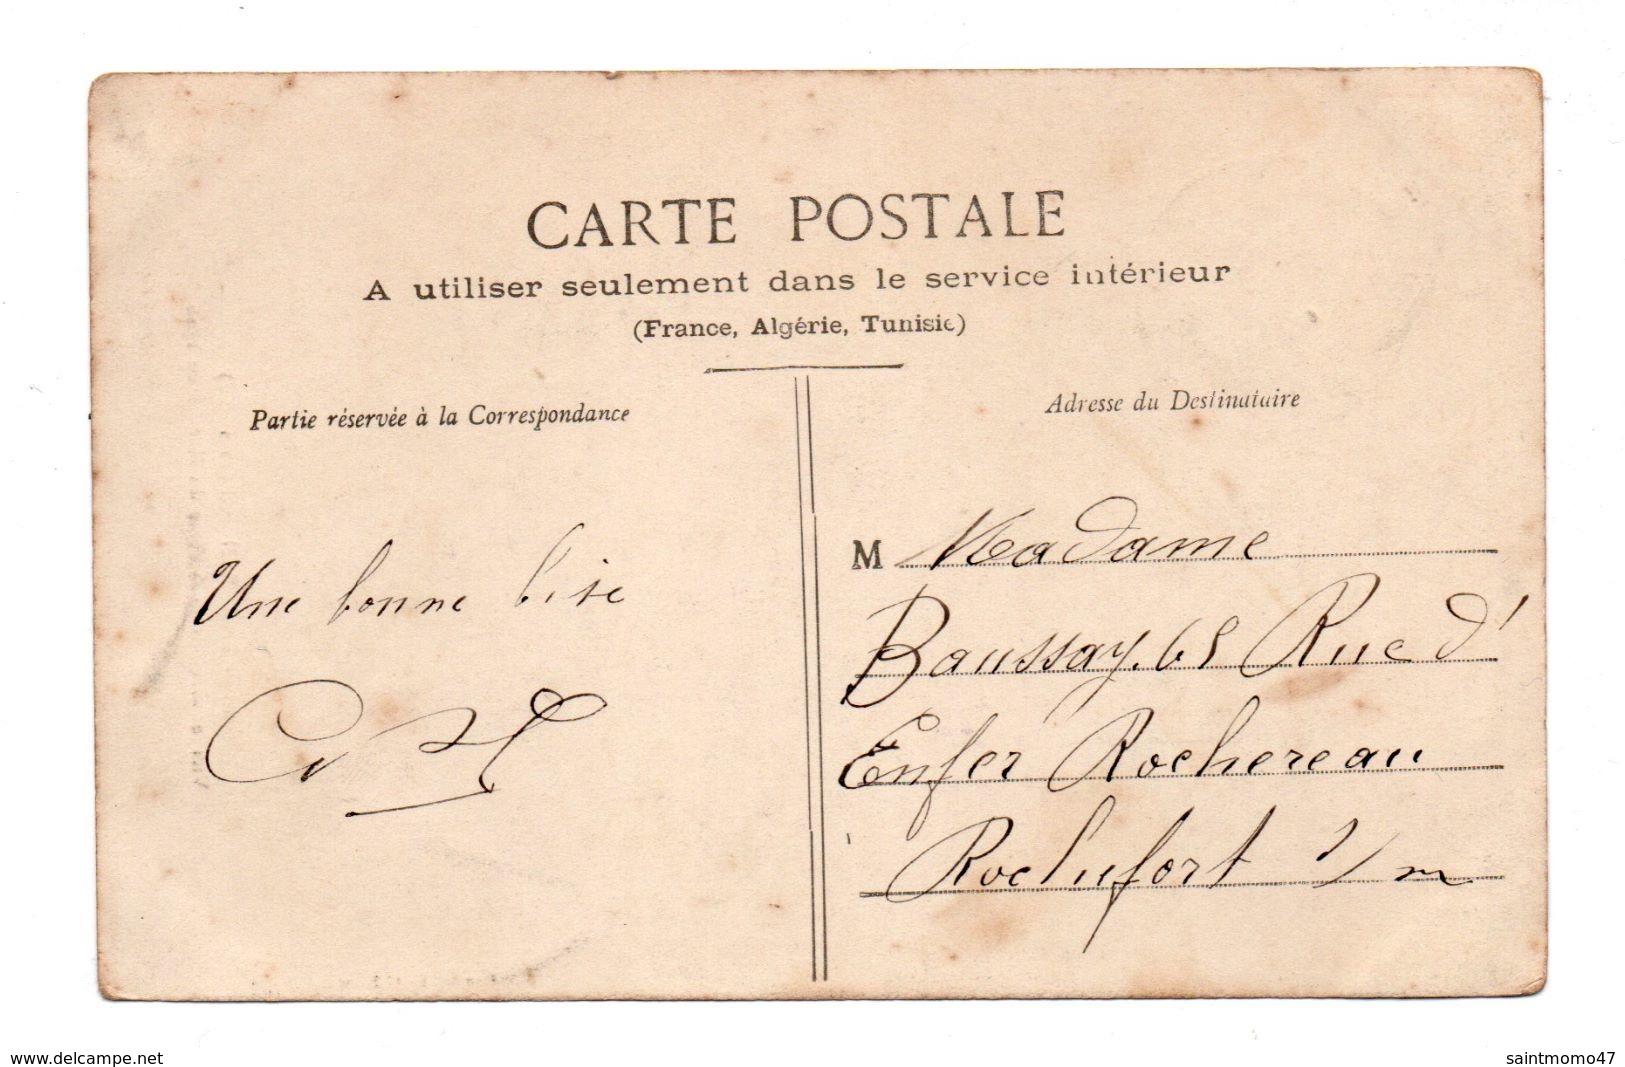 CARTE POSTALE
A utiliser seulement dans le service intérieur
(France, Algérie, Tunisie)
Partie réservée à la Correspondance
Une bonne bise
Adresse du Destinataire
M Madame
Baussay. 65 Rue d'
Enfer Rochereau
Rochefort s/m
www.delcampe.net
saintmomo47